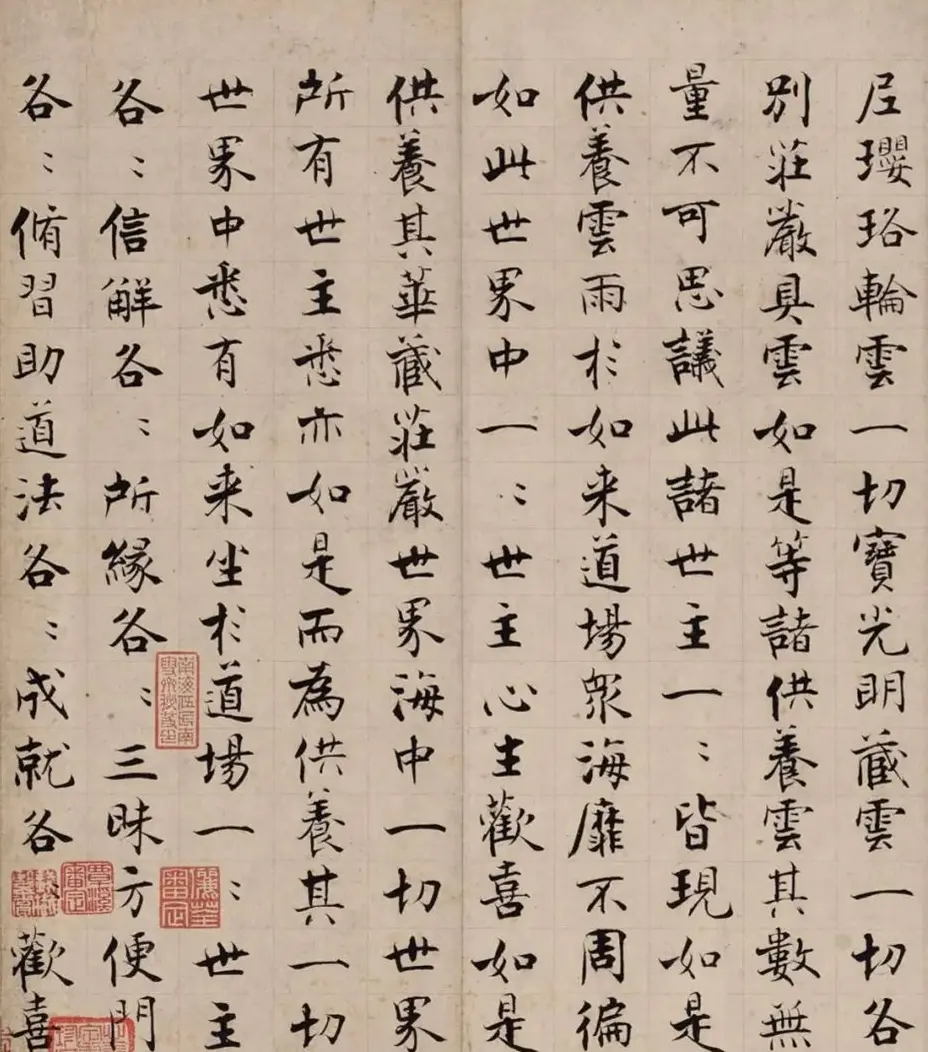 尼瓔珞輪雲一切寶光明藏雲一切各
別莊嚴具雲如是等諸供養雲其數無
量不可思議此諸世主一〻皆現如是
供養雲雨於如来道場衆海靡不周徧
如此世界中一〻世主心生歡喜如是
供養其華藏莊嚴世界海中一切世界
所有世主悉亦如是而為供養其一切
世界中悉有如来坐於道場一〻世主
各〻信解各〻所緣各〻三昧方便門
各〻脩習助道法各〻成就各〻歡喜
南海伍氏南
雪齋秘笈印